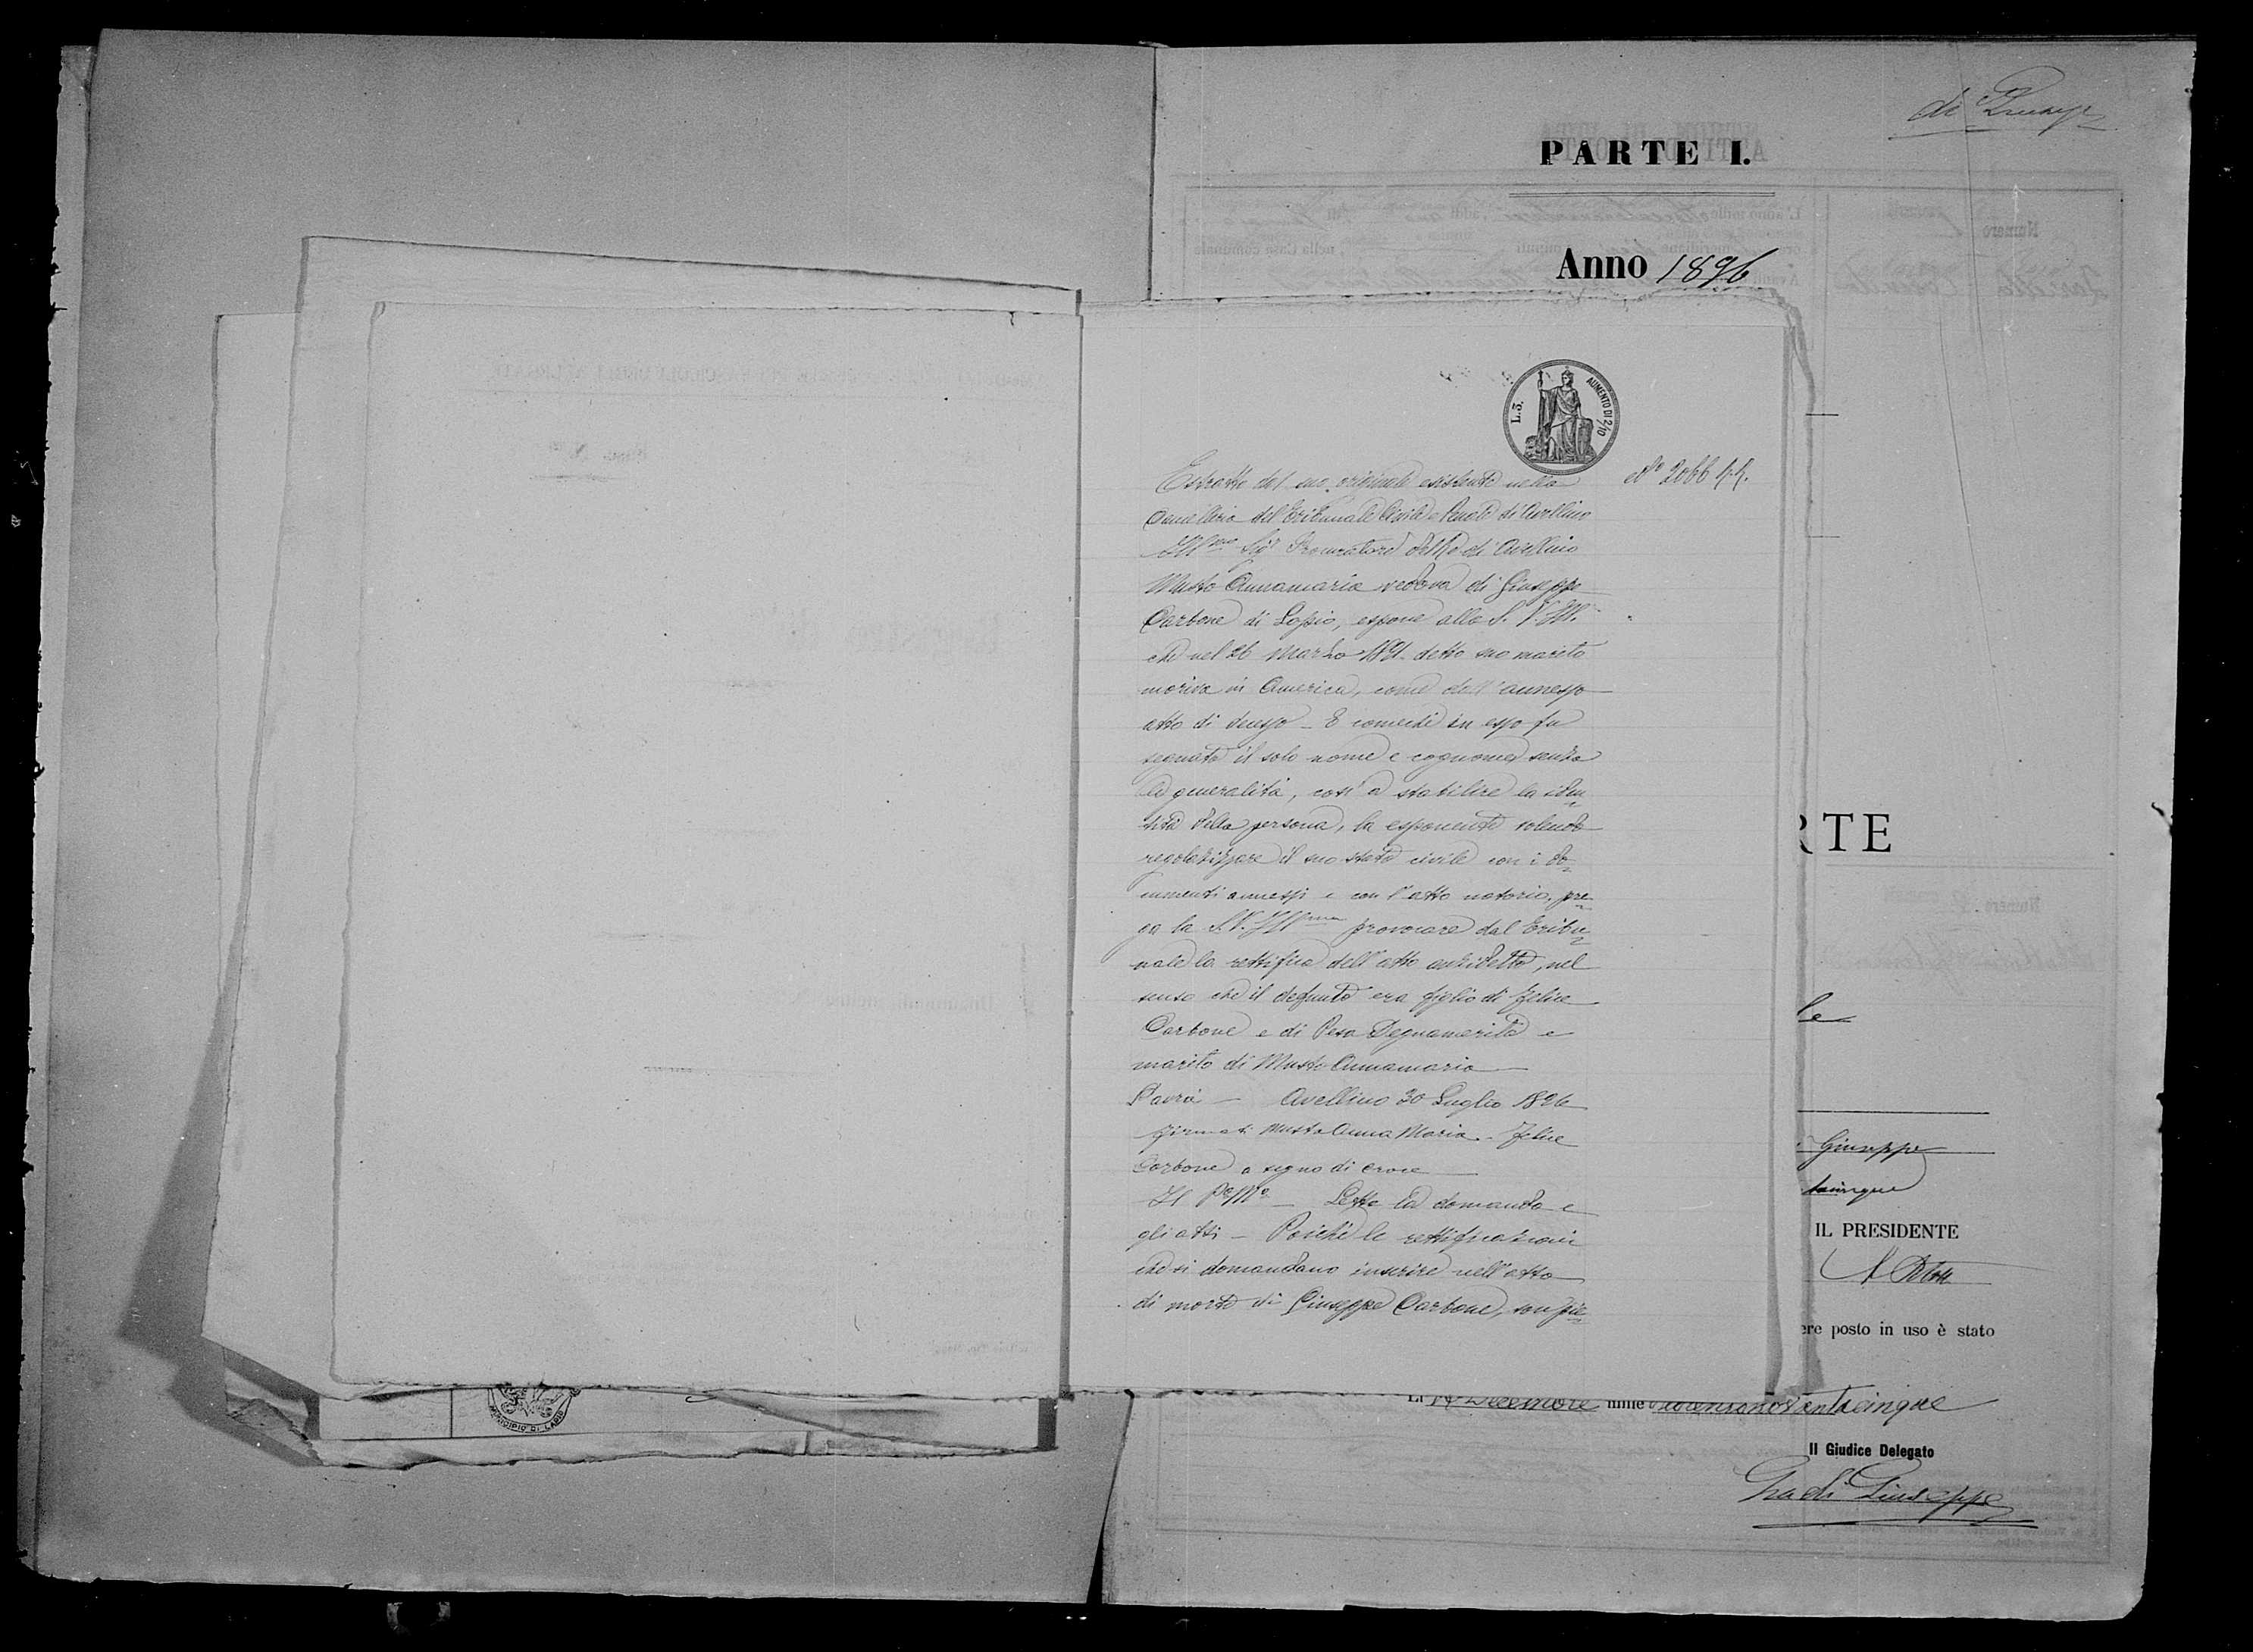 di Giuseppe
PARTE I.
Anno 1896
L. 3. AUMENTO DI 2/10
Estratto dal suo originale esistente nella
Cancelleria del Tribunale Civile e Penale di Avellino
Ill.mo Sig.r Procuratore del Re di Avellino
Musto Annamaria vedova di Giuseppe
Carbone di Lapio, espone alla S. V. Ill.
che nel 26 Marzo 1891 detto suo marito
moriva in America, come dall'annesso
atto di decesso _ E comechè in esso fu
segnato il solo nome e cognome senza
le generalità, così a stabilire la iden
tità della persona, la esponente volendo
regolarizzare il suo stato civile con i do
cumenti annessi e con l'atto notorio, pre
ga la S. V. Ill.ma provocare dal Tribu
nale la rettifica dell'atto anzidetto, nel
senso che il defunto era figlio di Felice
Carbone e di Pesa Degnamerita e
marito di Musto Annamaria
Avellino 30 Luglio 1896
firmati Musto Anna Maria _ Felice
Carbone a segno di croce
Il P. M.o _ Letta la domanda e
gli atti _ Poichè le rettificazioni
che si domandano inserire nell'atto
di morte di Giuseppe Carbone, son giu
No 2066
RTE
le
Giuseppe
tacinque
IL PRESIDENTE
ere posto in uso è stato
Li 14 Decembre mille ottocentonovantacinque
Il Giudice Delegato
Giuseppe
MUNICIPIO DI LAPIO